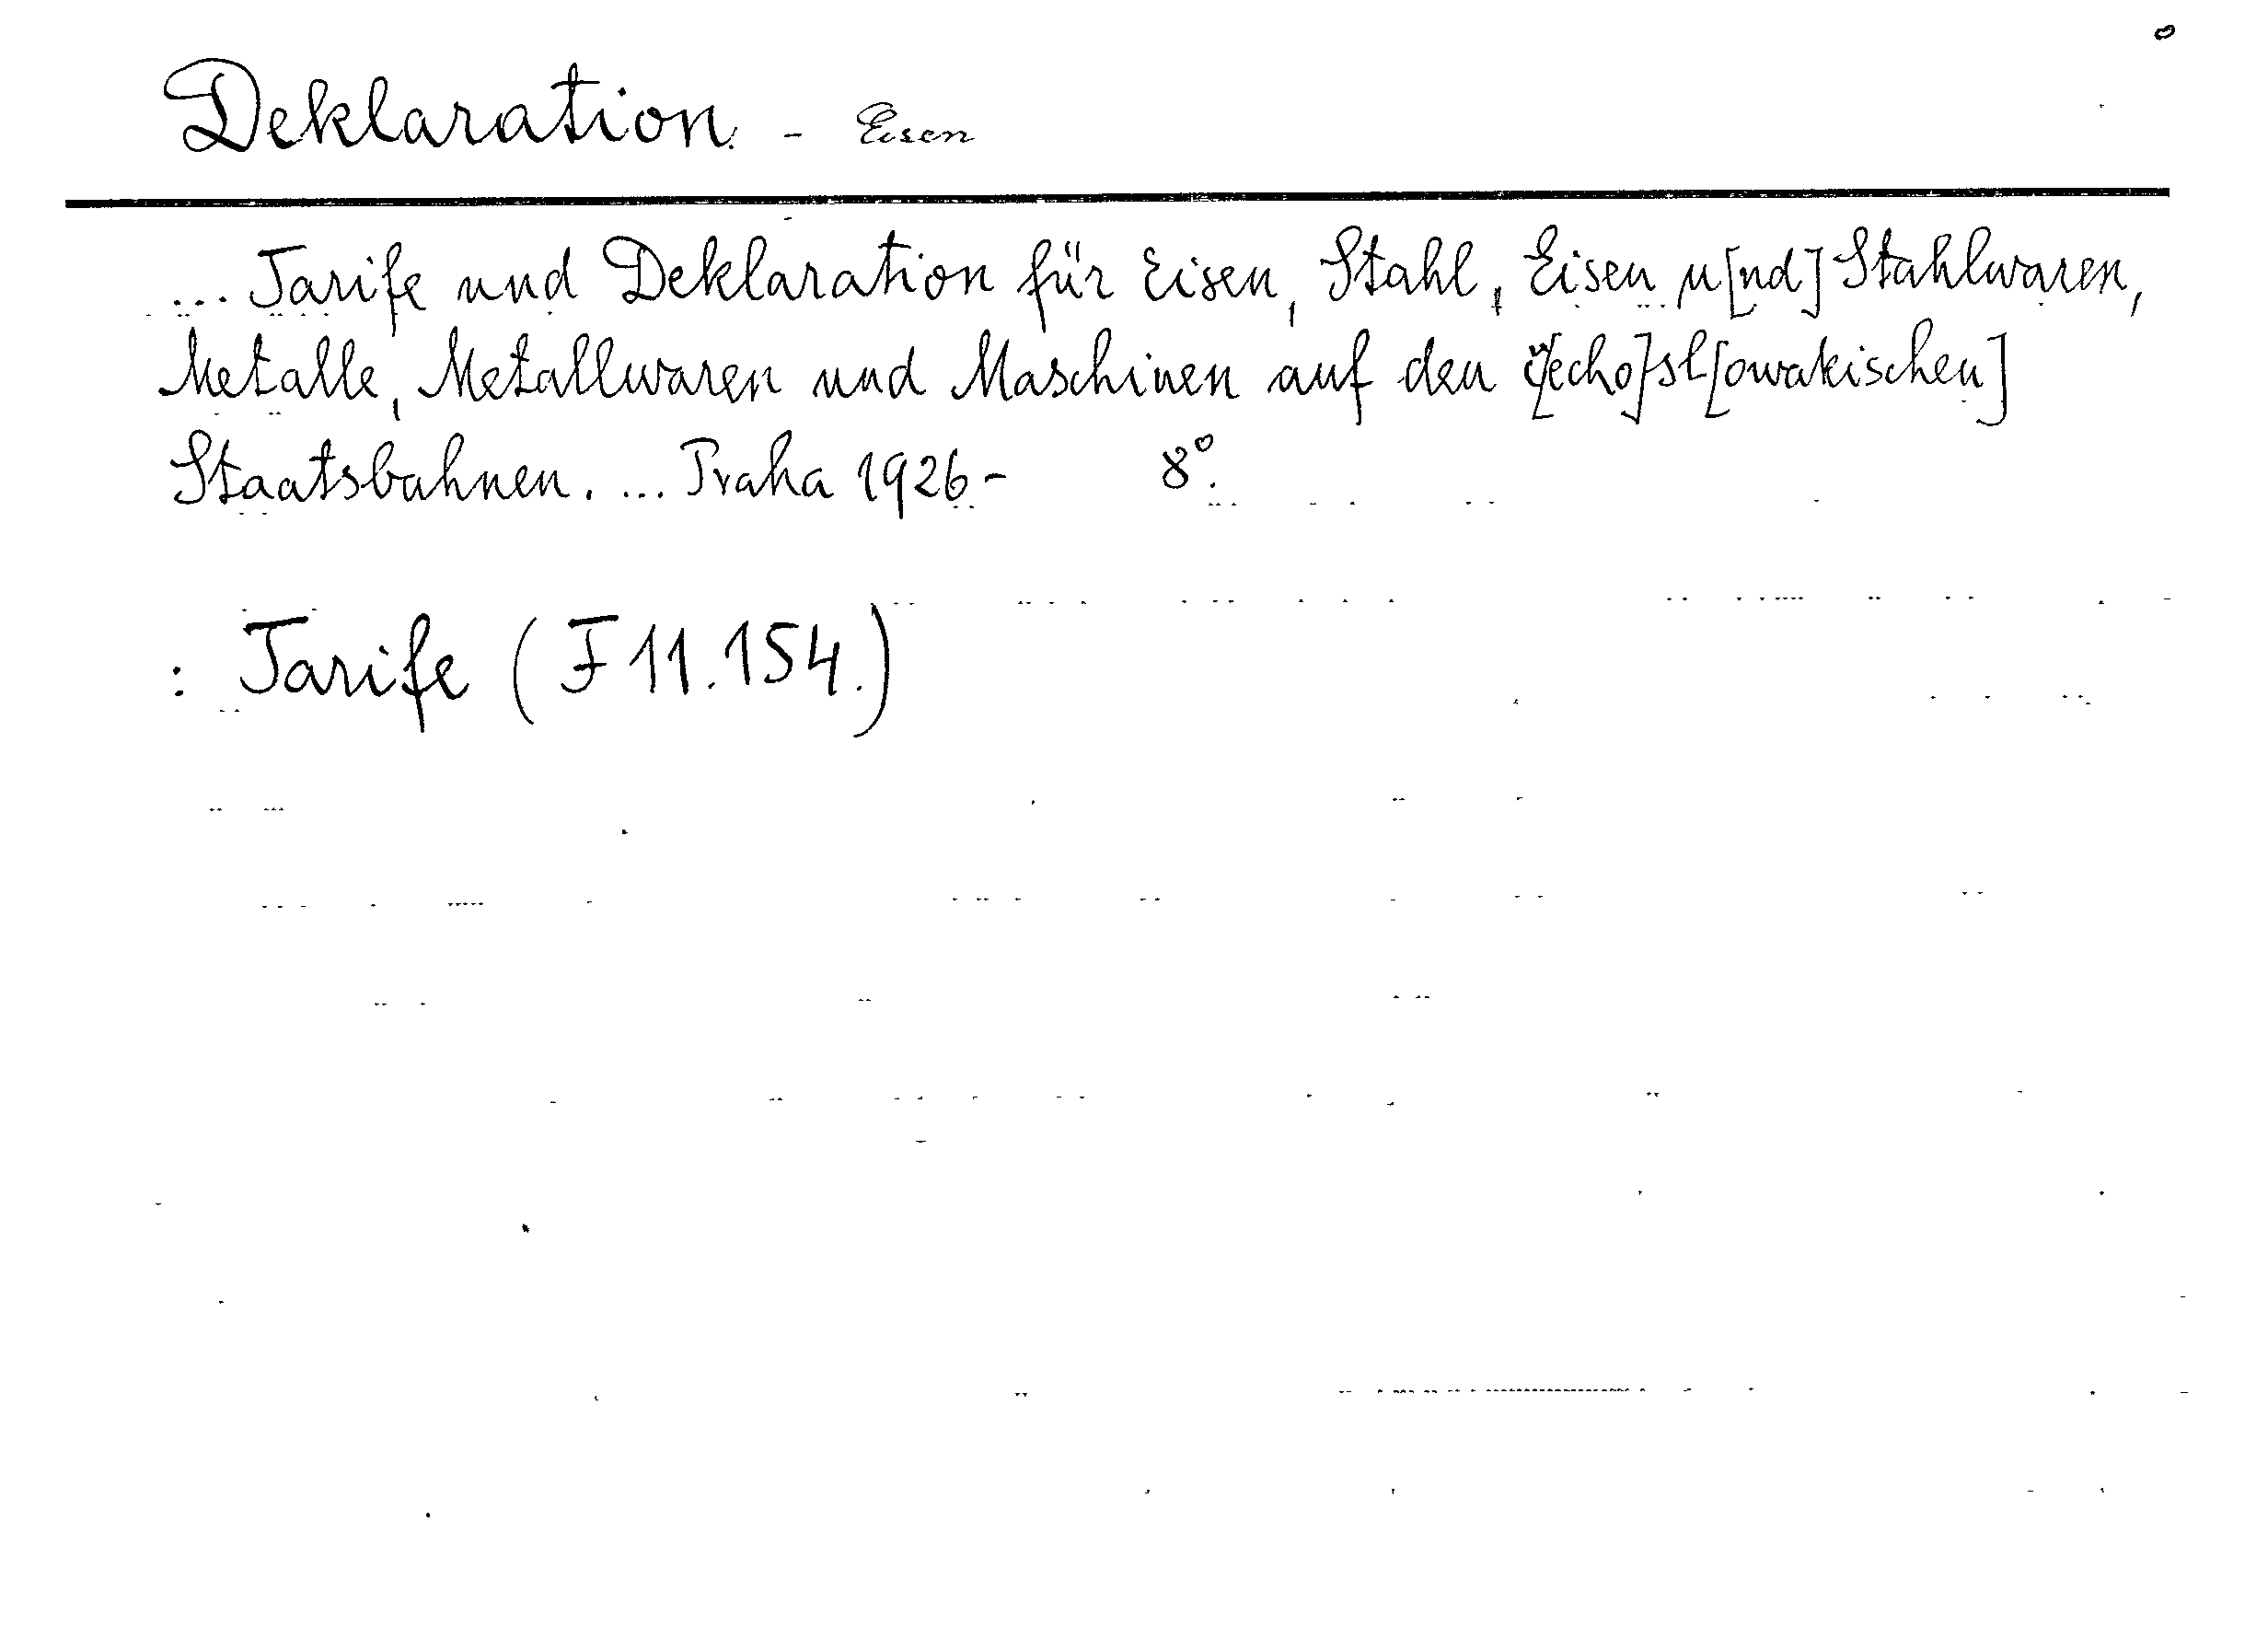 Deklaration. - Eisen
... Tarife und Deklaration für Eisen, Stahl, Eisen u[nd] Stahlwaren,
Metalle, Metallwaren und Maschinen auf den č[echo]sl[owakischen]
Staatsbahnen. ... Praha 1926- 8°.
: Tarife (F 11.154.)